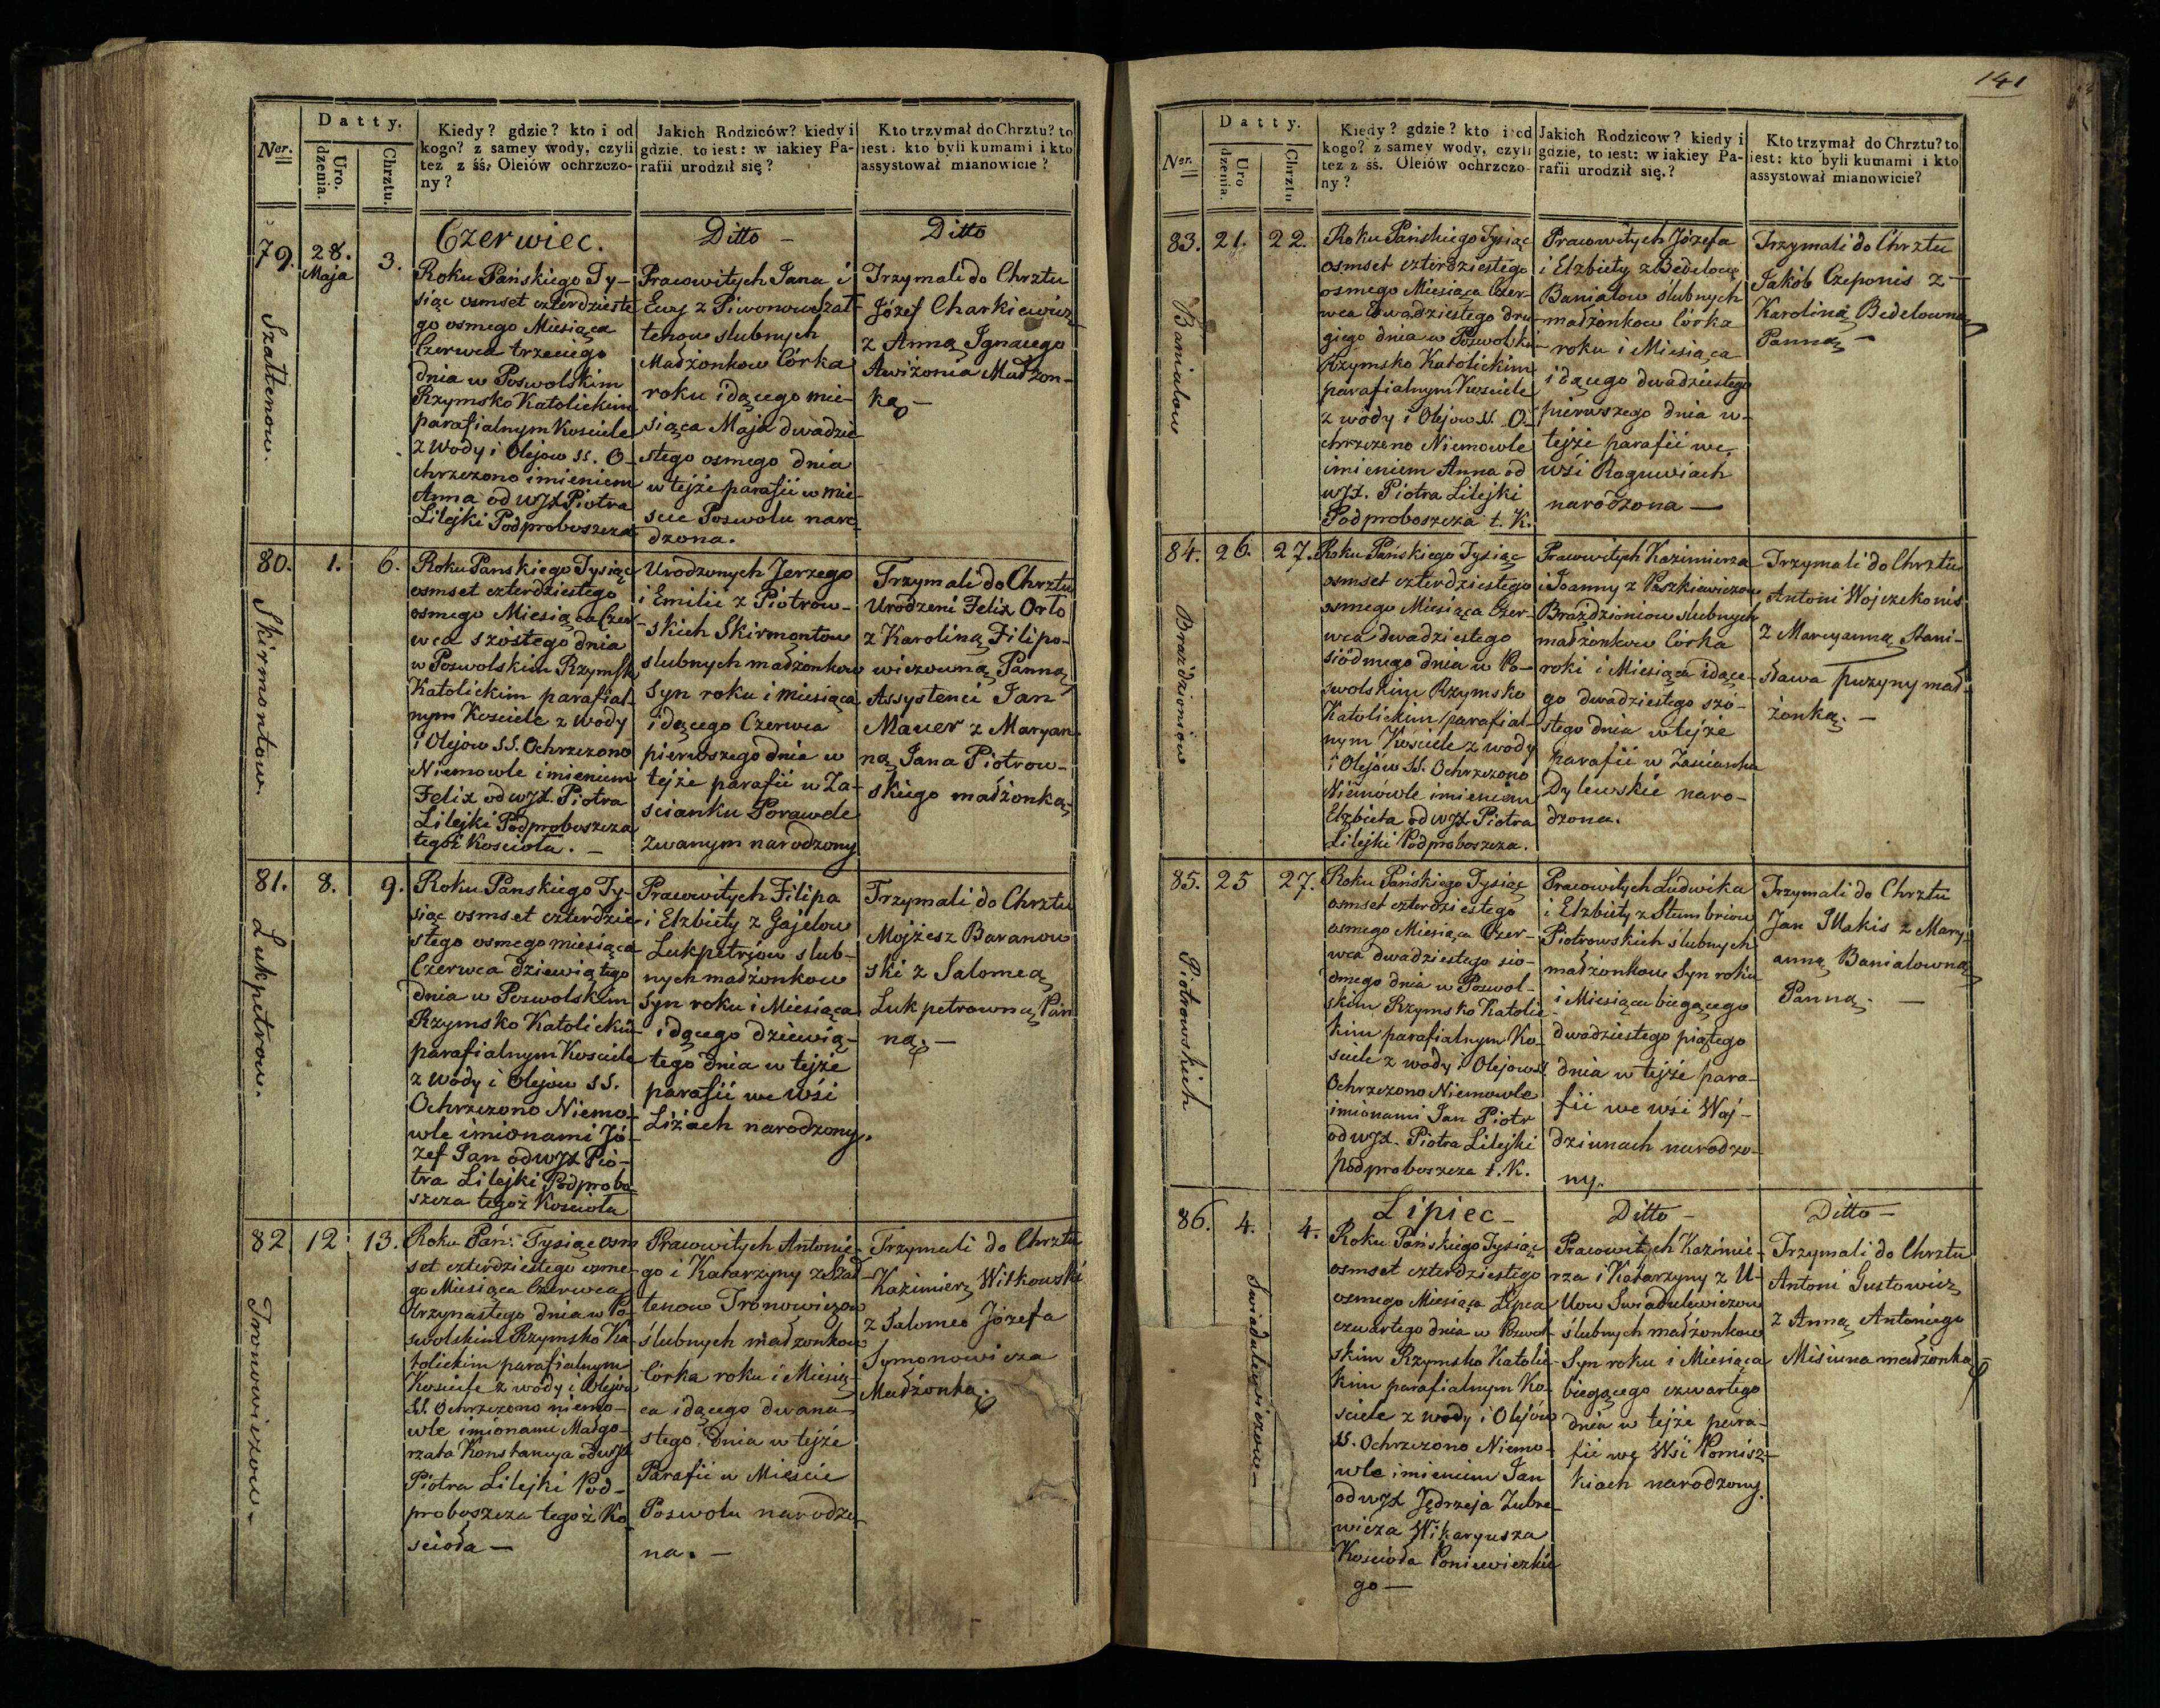 141
Ner.
Datty.
Uro.
dzenia.
Chrztu.
Kiedy? gdzie? kto i od
kogo? z samey wody, czyli
też z śś. Oleiów ochrzczo-
ny?
Jakich Rodziców? kiedy i
gdzie, to iest: w iakiey Pa-
rafii urodził się?
Kto trzymał do Chrztu? to
iest: kto byli kumami i kto
assystował mianowicie?
79.
28.
Maja
3.
Szattenow.
Czerwiec.
Roku Pańskiego Ty-
siąc osmset czterdzieste
go osmego Miesiąca
Czerwca trzeciego
dnia w Poswolskim
Rzymsko Katolickim
parafialnym Kosciele
z Wody i Olejow SS. O-
chrzczono imieniem
Anna od WJX Piotra
Lilejki Podproboszcza
Ditto -
Prawowitych Jana i
Ewy z Piwonow Szat
tenow slubnych
Małżonkow Córka
roku idącego mie-
siąca Maja dwadzie
stego osmego dnia
w tejże parafii w mie-
scie Poswolu naro
dzona.
Ditto
Trzymali do Chrztu
Józef Charkiewicz
z Anną Ignacego
Awiżonia Małżon-
ką -
80.
1.
6.
Skirmontow.
Roku Panskiego Tysiąc
osmset czterdziestego
osmego Miesiąca Czer-
wca szostego dnia
w Poswolskim Rzymsk
Katolickim parafial-
nym Kosciele z wody
i Olejow S.S. Ochrzczono
Niemowle imieniem
Felix od WJX. Piotra
Lilejki Podproboszcza
tegoż Kosciola. -
Urodzonych Jerzego
i Emilii z Piotrow-
skich Skirmontow
slubnych małżonkow
Syn roku i miesiąca
idącego Czerwca
pierwszego dnia w
tejże parafii w Za-
scianku Porawele
zwanym narodzony
Trzymali do Chrztu
Urodzeni Felix Orło
z Karoliną Filipo-
wiczowną Panną
Assystenci Jan
Mauer z Maryan-
ną Jana Piotrow-
skiego małżonką
81.
8.
9.
Lukpetrow.
Roku Panskiego Ty-
siąc osmset czterdzie
stego osmego miesiąca
Czerwca dziewiątego
dnia w Poswolskim
Rzymsko Katolickim
parafialnym Kosciele
z wody i Olejow SS.
Ochrzczono Niemo-
wle imionami Jó-
zef Jan od WJX Pio-
tra Lilejki Podprobo
szcza tegoż Kosciola
Prawowitych Filipa
i Elzbiety z Gajelow
Lukpetrjow slub-
nych małżonkow
Syn roku i Miesiąca
idącego dziewią-
tego dnia w tejże
parafii we wśi
Liżach narodzony.
Trzymali do Chrztu
Mojżesz Baranow
ski z Salomeą
Lukpetrowną Pan
ną. -
82
12
13.
Tronowiczow.
Roku Pań: Tysiąc osm
set czterdziestego osme-
go Miesiąca Czerwca
trzynastego dnia w Po-
swolskim Rzymsko Ka
tolickim parafialnym
Kosciele z wody i Olejow
SS. Ochrzczono niemo-
wle imionami Małgo-
rzata Konstancya od WJX
Piotra Lilejki Pod-
proboszcza tegoż Ko
scioła -
Prawowitych Antonie-
go i Katarzyny z Szat
tenow Tronowiczow
ślubnych małżonkow
Córka roku i Miesią-
ca idącego dwana-
stego dnia w tejże
Parafii w Miescie
Poswolu narodzo
na. -
Trzymali do Chrztu
Kazimierz Witkowski
z Salomeo Józefa
Symonowicza
Małżonka.
Ner.
Datty.
Uro
dzenia.
Chrztu
Kiedy? gdzie? kto i od
kogo? z samey wody, czyli
tez z śś. Oleiów ochrzczo-
ny?
Jakich Rodzicow? kiedy i
gdzie, to iest: w iakiey Pa-
rafii urodził się.?
Kto trzymał do Chrztu? to
iest: kto byli kumami i kto
assystował mianowicie?
83.
21.
22.
Banialow
Roku Pańskiego Tysiąc
osmset czterdziestego
osmego Miesiąca Czer-
wca dwadziestego dru-
giego dnia w Poswolski-
Rzymsko Katolickim
parafialnym Kosciele
z wody i Olejow SS. O-
chrzczeno Niemowle
imieniem Anna od
WJX. Piotra Lilejki
Podproboszcza t. K.
Prawowitych Józefa
i Elzbiety z Bedelow
Banialow ślubnych
małżonkow Córka
roku i Miesiąca
idącego dwadziestego
pierwszego dnia w
tejże parafii we
wśi Roguwiach
narodzona -
Trzymali do Chrztu
Jakób Czeponis z
Karoliną Bedelowną
Panną -
84.
26.
27.
Brażdzioniow
Roku Pańskiego Tysiąc
osmset czterdziestego
osmego Miesiąca Czer-
wca dwadziestego
siódmego dnia w Po-
swolskim Rzymsko
Katolickim parafial-
nym Kościele z wody
i Olejow SS. Ochrzczono
Niemowle imieniem
Elzbieta od WJX Piotra
Lilejki Podproboszcza.
Prawowitych Kazimierza
i Joanny z Paszkiewiczow
Brażdzioniow slubnych
małżonkow Córka
roki i Miesiąca idące-
go dwadziestego szó-
stego dnia w tejże
parafii w Zascianku
Dylewskie naro-
dzona.
Trzymali do Chrztu
Antoni Wojczekonis
z Maryanną Stani-
sława Puzyny mał-
żonką. -
85.
25
27.
Piotrowskich
Roku Pańskiego Tysiąc
osmset czterdziestego
osmego Miesiąca Czer-
wca dwadziestego sio-
dmego dnia w Poswol-
skim Rzymsko Katolic
kim parafialnym Ko-
sciele z wody i Olejow SS
Ochrzczono Niemowle
imionami Jan Piotr
od WJX. Piotra Lilejki
Podproboszcza t. K.
Prawowitych Ludwika
i Elzbiety z Stumbriow
Piotrowskich ślubnych
małżonkow Syn roku
i Miesiąca biegącego
dwadziestego piątego
dnia w tejże para-
fii we wśi Waj-
dziunach narodzo-
ny.
Trzymali do Chrztu
Jan Makis z Mary-
anną Banialowną
Panną. -
86.
4.
4.
Swiadulewiczow -
Lipiec -
Roku Pańskiego Tysiąc
osmset czterdziestego
osmego Miesiąca Lipca
czwartego dnia w Poswol-
skim Rzymsko Katolic
kim parafialnym Ko-
sciele z wody i Olejow
SS. Ochrzczono Niemo-
wle imieniem Jan
od WJX Jędrzeja Zubre
wicza Wikaryusza
Kościoła Poniewiezkie
go -
Ditto -
Prawowitych Kazimie-
rza i Katarzyny z U-
llow Swiadulewiczow
ślubnych małżonkow
Syn roku i Miesiąca
biegącego czwartego
dnia w tejże para-
fii we Wśi Pomisz-
kiach narodzony.
Ditto -
Trzymali do Chrztu
Antoni Gustowicz
z Anną Antoniego
Misiuna małżonką